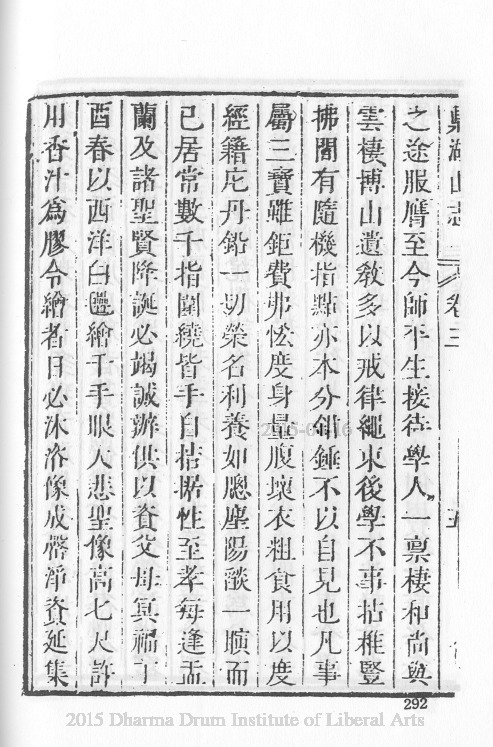 鼎湖山志 卷三 五
之途服膺至今師平生接待學人一稟棲和尚與
雲棲博山遺教多以戒律繩束後學不事拈椎豎
拂間有隨機指點亦本分鉗錘不以自見也凡事
屬三寶雖鉅費弗恡度身量腹壞衣粗食用以度
經籍庀丹鉛一切榮名利養如聰塵陽燄一瞚而
已居常數千指圍繞皆手自拮据性至孝每逢盂
蘭及諸聖賢降誕必竭誠辦供以資父母冥福丁
酉春以西洋白氎繪千手眼大悲聖像高七尺許
用香汁為膠令繪者日必沐浴像成罄淨資延集
292
2015 Dharma Drum Institute of Liberal Arts